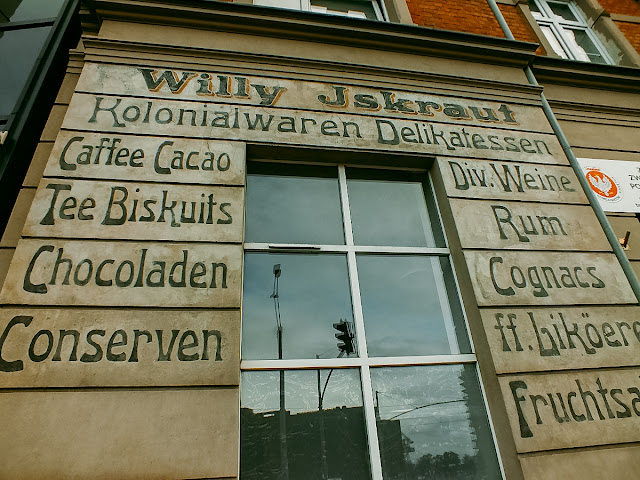 Willy Jskraut
Kolonialwaren Delikatessen
Caffee Cacao
Tee Biskuits
Chocoladen
Conserven
Div. Weine
Rum
Cognacs
ff. Liköere
Fruchtsa